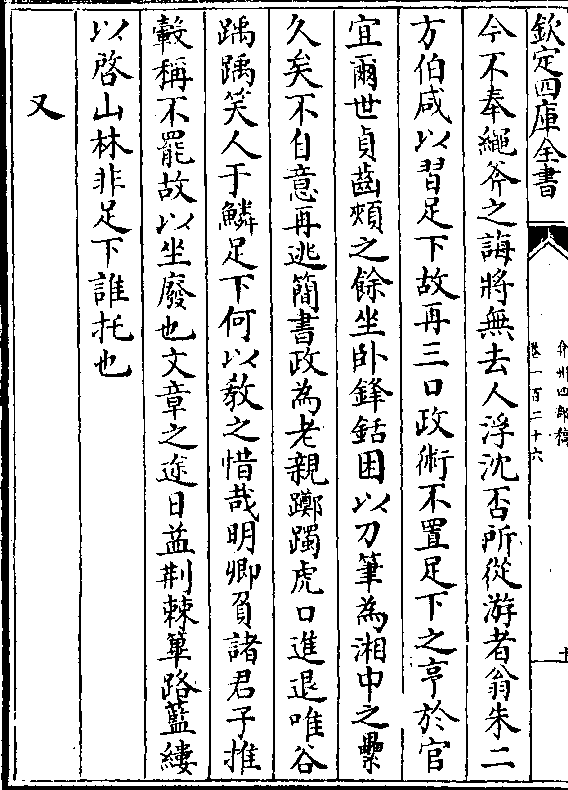 欽定四庫全書
弇州四部稿
卷一百二十六
十
今不奉繩斧之誨將無去人浮沈否所從游者翁朱二
方伯咸以習足下故再三口政術不置足下之亨於官
宜爾世貞齒頰之餘坐卧鋒銛困以刀筆為湘中之纍
久矣不自意再逃簡書政為老親躑躅虎口進退唯谷
踽踽笑人于鱗足下何以敎之惜哉明卿負諸君子推
轂稱不罷故以坐廢也文章之途日益荆棘篳路藍縷
以啓山林非足下誰托也
又